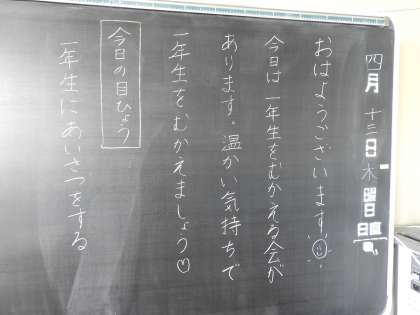 四月十三日木曜日
日直
おはようございます
今日は一年生をむかえる会が
あります。温かい気持ちで
一年生をむかえましょう♡
今日の目ひょう
一年生にあいさつをする